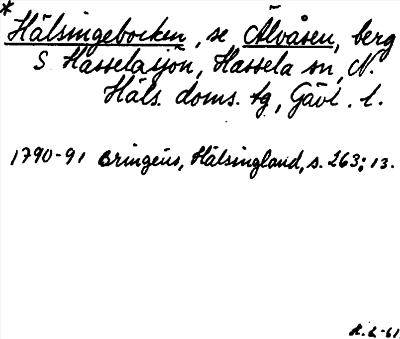 * Hälsingebocken, se Älvåsen, berg
S. Hasselasjön, Hassela sn, N.
Häls. doms. tg, Gävl. l.
1790-91 Bringéus, Hälsingland, s. 263; 13.